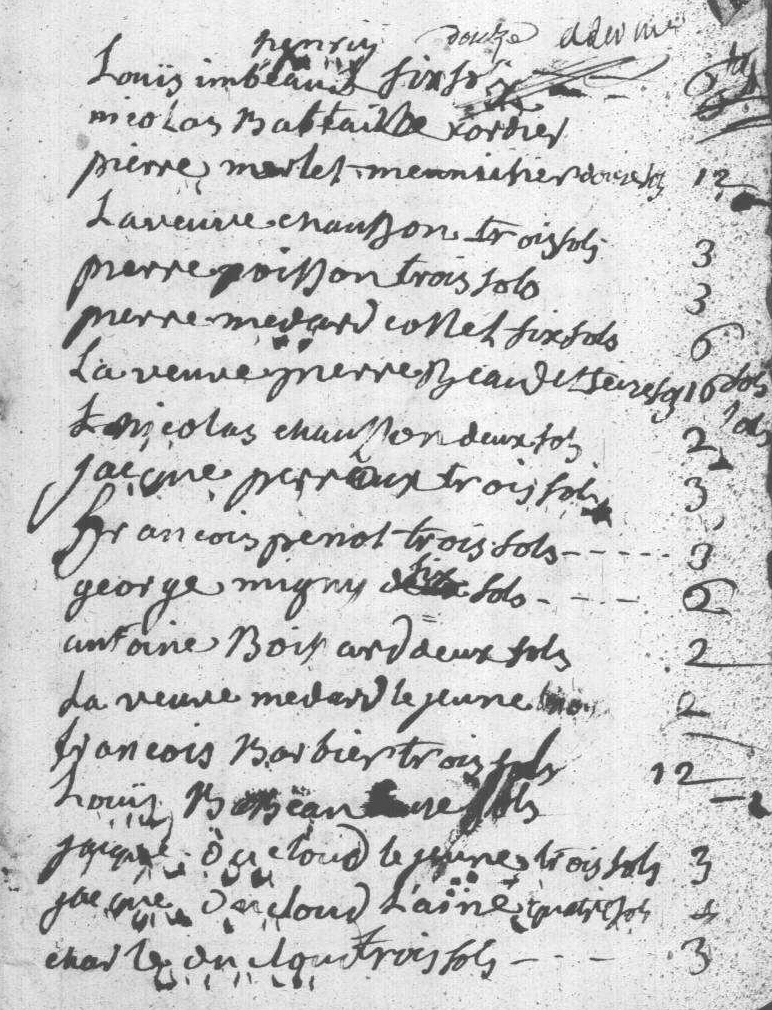 henry douze
Louis imbeault six sols 6
nicolas Battaille cordier
pierre merlet meunitier douze sols 12
La veuve chausson trois sols 3
pierre poisson trois sols 3
pierre medard collet six sols 6
La veuve pierre Beaudet seize sols 16 sols
nicolas chausson deux sols 2 sols
jacque perroux trois sols 3
francois penot trois sols ----- 3
george migny six sols ---- 6
antoine Boisard deux sols 2
La veuve medard le jeune 2
francois Barbier trois sols
Louis sols 12
jacque ducloud le jeune trois sols 3
jacque ducloud L'ainé quatre sols 4
charle duclou trois sols --- 3